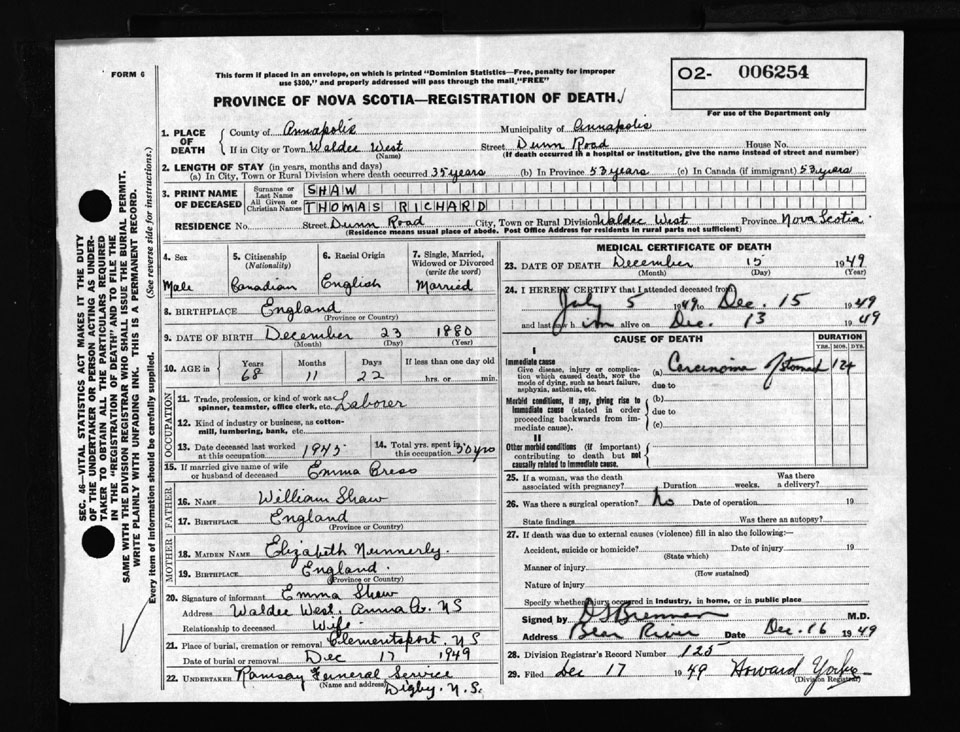 FORM 6
This form if placed in an envelope, on which is printed "Dominion Statistics—Free, penalty for improper
use $300," and properly addressed will pass through the mail "FREE"
O2- 006254
For use of the Department only
PROVINCE OF NOVA SCOTIA—REGISTRATION OF DEATH
1. PLACE OF DEATH { County of Annapolis Municipality of Annapolis
If in City or Town Waldec West Street Dunn Road House No.
(Name) (If death occurred in a hospital or institution, give the name instead of street and number)
2. LENGTH OF STAY (in years, months and days)
(a) In City, Town or Rural Division where death occurred 35 years (b) In Province 53 years (c) In Canada (if immigrant) 53 years
3. PRINT NAME OF DECEASED { Surname or Last Name SHAW
All Given or Christian Names THOMAS RICHARD
RESIDENCE No. Street Dunn Road City, Town or Rural Division Waldec West Province Nova Scotia
(Residence means usual place of abode. Post Office Address for residents in rural parts not sufficient)
4. Sex
Male
5. Citizenship
(Nationality)
Canadian
6. Racial Origin
English
7. Single, Married,
Widowed or Divorced
(write the word)
Married
8. BIRTHPLACE England
(Province or Country)
9. DATE OF BIRTH December 23 1880
(Month) (Day) (Year)
10. AGE in { Years Months Days If less than one day old
68 11 22 hrs. or min.
OCCUPATION
11. Trade, profession, or kind of work as
spinner, teamster, office clerk, etc. Laborer
12. Kind of industry or business, as cotton-
mill, lumbering, bank, etc.
13. Date deceased last worked
at this occupation 1945
14. Total yrs. spent in
this occupation 50 yrs
15. If married give name of wife
or husband of deceased Emma Bress
FATHER
16. NAME William Shaw
17. BIRTHPLACE England
(Province or Country)
MOTHER
18. MAIDEN NAME Elizabeth Nunnerly.
19. BIRTHPLACE England.
(Province or Country)
20. Signature of informant Emma Shaw
Address Waldec West. Anna Co. NS
Relationship to deceased Wife.
21. Place of burial, cremation or removal Clementsport, NS
Date of burial or removal Dec 17 1949
22. UNDERTAKER Ramsay Funeral Service
(Name and address) Digby, N.S.
MEDICAL CERTIFICATE OF DEATH
23. DATE OF DEATH December 15 1949
(Month) (Day) (Year)
24. I HEREBY CERTIFY that I attended deceased from
July 5 1949 to Dec. 15 1949
and last saw h im alive on Dec. 13 1949
CAUSE OF DEATH
DURATION
YRS. MOS. DYS.
I
Immediate cause
Give disease, injury or complica-
tion which caused death, NOT the
mode of dying, such as heart failure,
asphyxia, asthenia, etc.
(a) Carcinoma of Stomach
due to
Morbid conditions, if any, giving rise to
immediate cause (stated in order
proceeding backwards from im-
mediate cause).
(b)
due to
(c)
II
Other morbid conditions (if important)
contributing to death but not
causally related to immediate cause.
25. If a woman, was the death
associated with pregnancy? Duration weeks. Was there
a delivery?
26. Was there a surgical operation? No Date of operation 19
State findings Was there an autopsy?
27. If death was due to external causes (violence) fill in also the following:—
Accident, suicide or homicide? Date of injury 19
(State which)
Manner of injury
(How sustained)
Nature of injury
Specify whether injury occurred in industry, in home, or in public place
Signed by M.D.
Address Bear River Date Dec. 16 1949
28. Division Registrar's Record Number 125
29. Filed Dec 17 1949 Howard
(Division Registrar)
SEC. 46—VITAL STATISTICS ACT MAKES IT THE DUTY
OF THE UNDERTAKER OR PERSON ACTING AS UNDER-
TAKER TO OBTAIN ALL THE PARTICULARS REQUIRED
IN THE "REGISTRATION OF DEATH" AND TO FILE THE
SAME WITH THE DIVISION REGISTRAR WHO SHALL ISSUE THE BURIAL PERMIT.
WRITE PLAINLY WITH UNFADING INK. THIS IS A PERMANENT RECORD.
Every item of information should be carefully supplied. (See reverse side for instructions.)